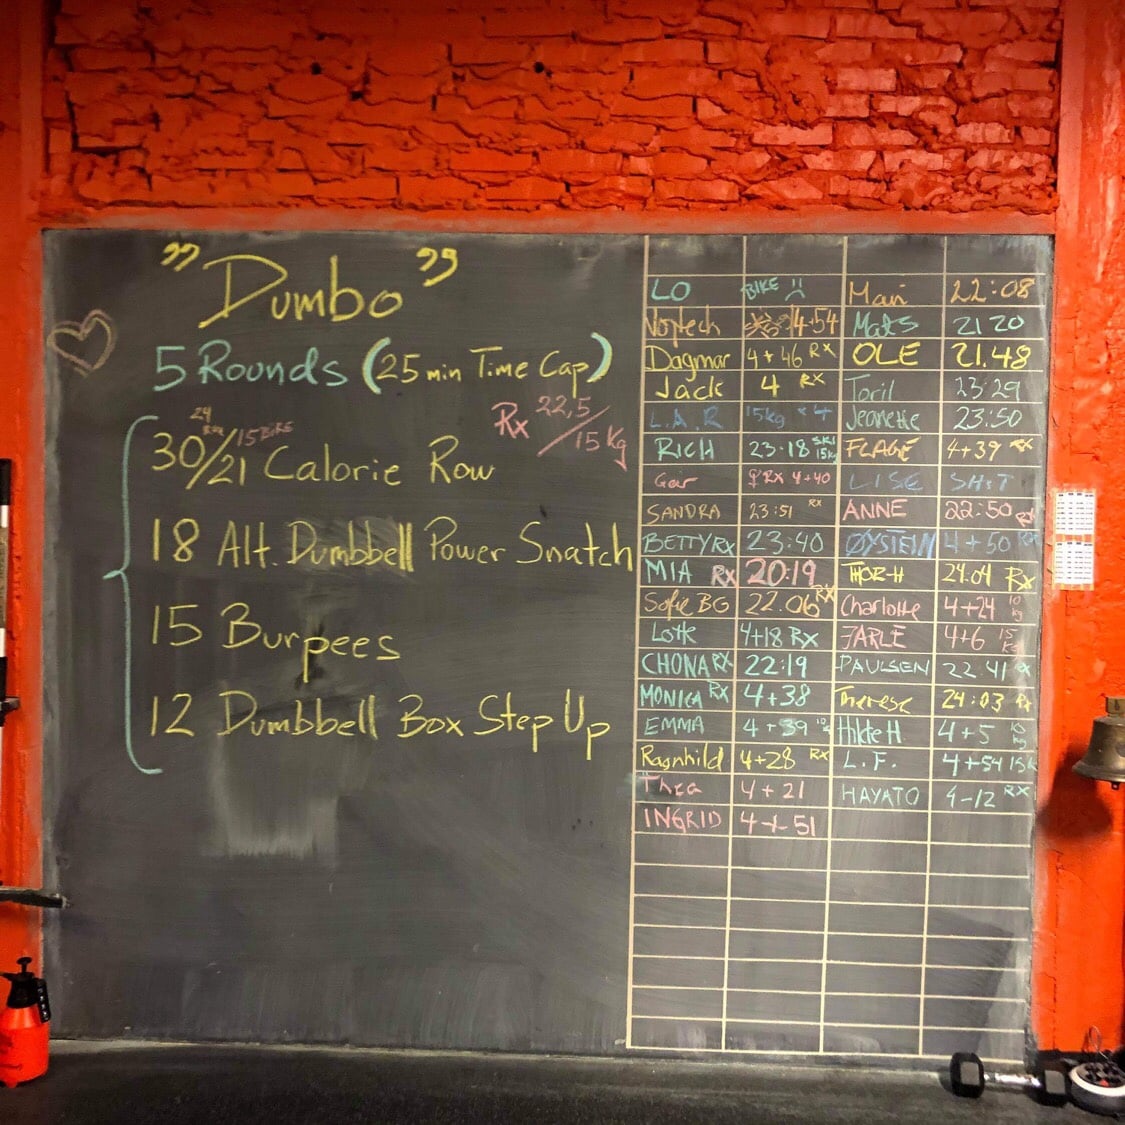 "Dumbo"
5 Rounds (25 min Time Cap)
Rx 22,5/15 kg
24 /15 BIKE
30/21 Calorie Row
18 Alt. Dumbbell Power Snatch
15 Burpees
12 Dumbbell Box Step Up
LO BIKE Mari 22:08
4+54 Mats 21 20
Dagmar 4+46 RX OLE 21.48
Jack 4 RX Toril 23:29
L.A.R 15kg Jeanette 23:50
RICH 23·18 SKI 15kg FLAGE 4+39 RX
Geir RX 4+40 LISE SH:T
SANDRA 23:51 RX ANNE 22:50 RX
BETTY RX 23:40 ØYSTEIN 4+50 RX
MIA RX 20:19 THOR-H 24.04 Rx
Sofie BG 22.06 RX Charlotte 4+24 10 kg
Lotte 4+18 RX JARLE 4+6 15 kg
CHONA RX 22:19 PAULSEN 22.41 RX
MONICA RX 4+38 Therese 24:03 Rx
EMMA 4+39 10 Hilde H 4+5 10 kg
Ragnhild 4+28 RX L.F. 4+54 15k
Thea 4+21 HAYATO 4-12 RX
INGRID 4+51